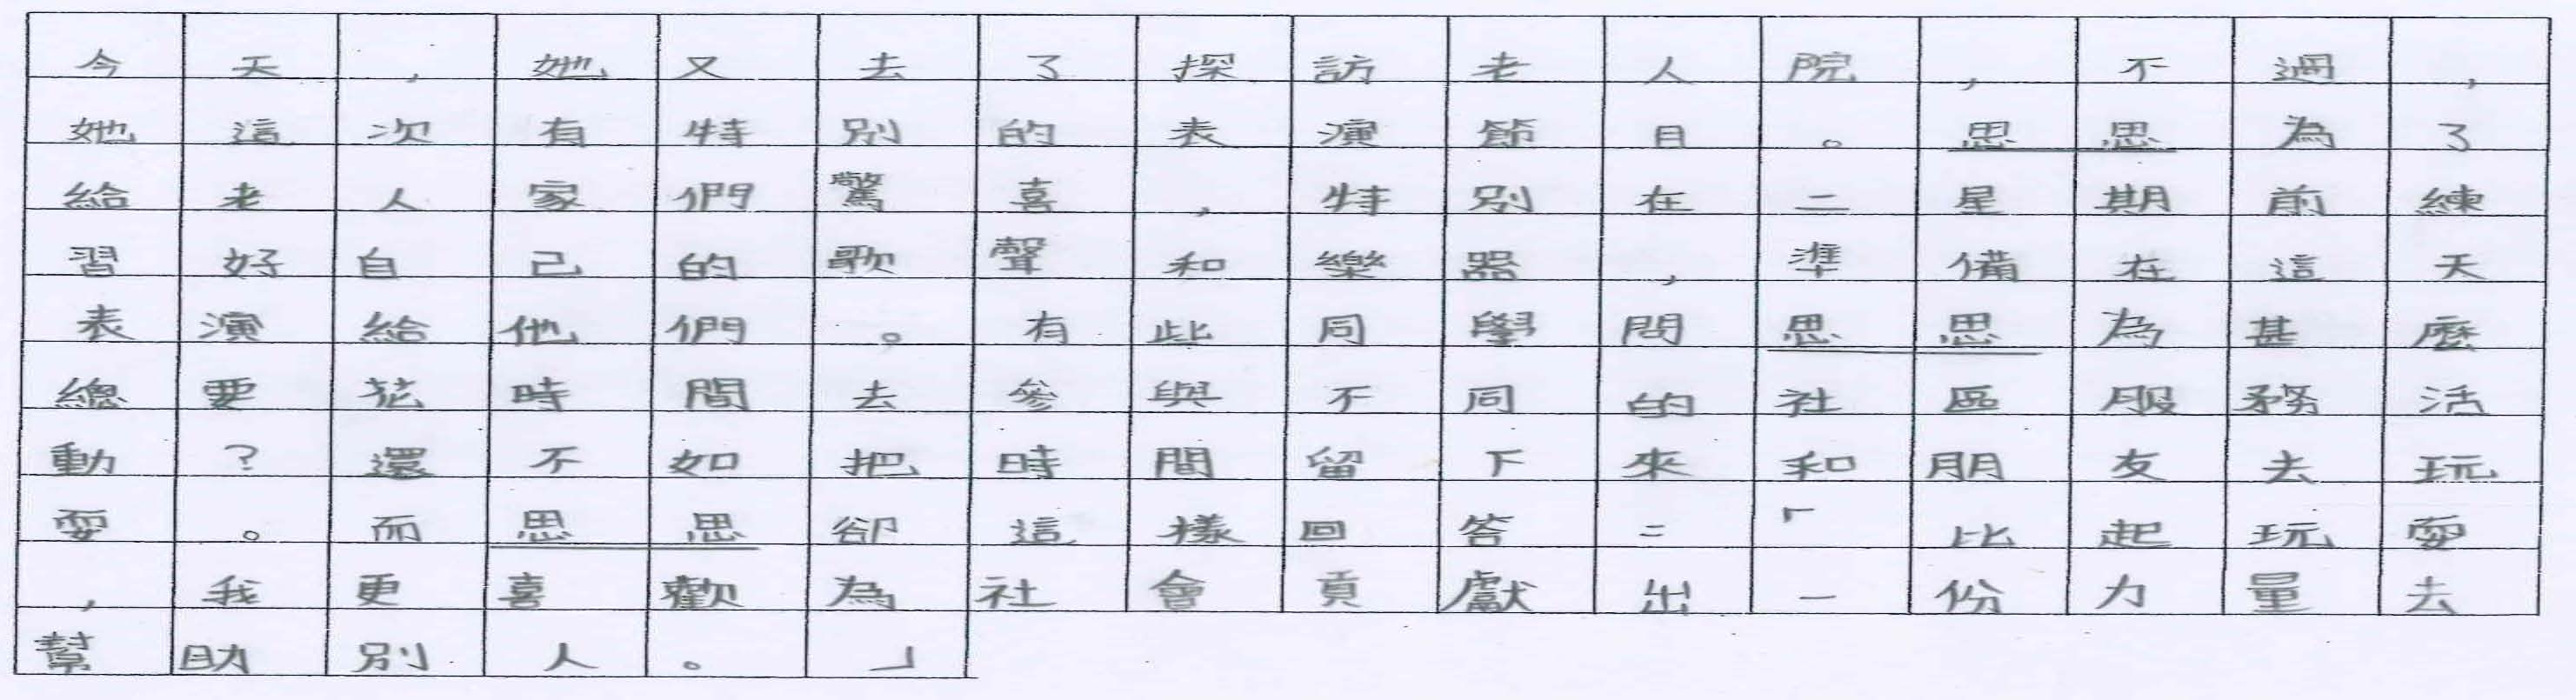 今天，她又去了探訪老人院，不過，
她這次有特別的表演節目。思思為了
給老人家們驚喜，特別在二星期前練
習好自己的歌聲和樂器，準備在這天
表演給他們。有些同學問思思為甚麼
總要花時間去參與不同的社區服務活
動？還不如把時間留下來和朋友去玩
耍。而思思卻這樣回答：「比起玩耍
，我更喜歡為社會貢獻出一份力量去
幫助別人。」